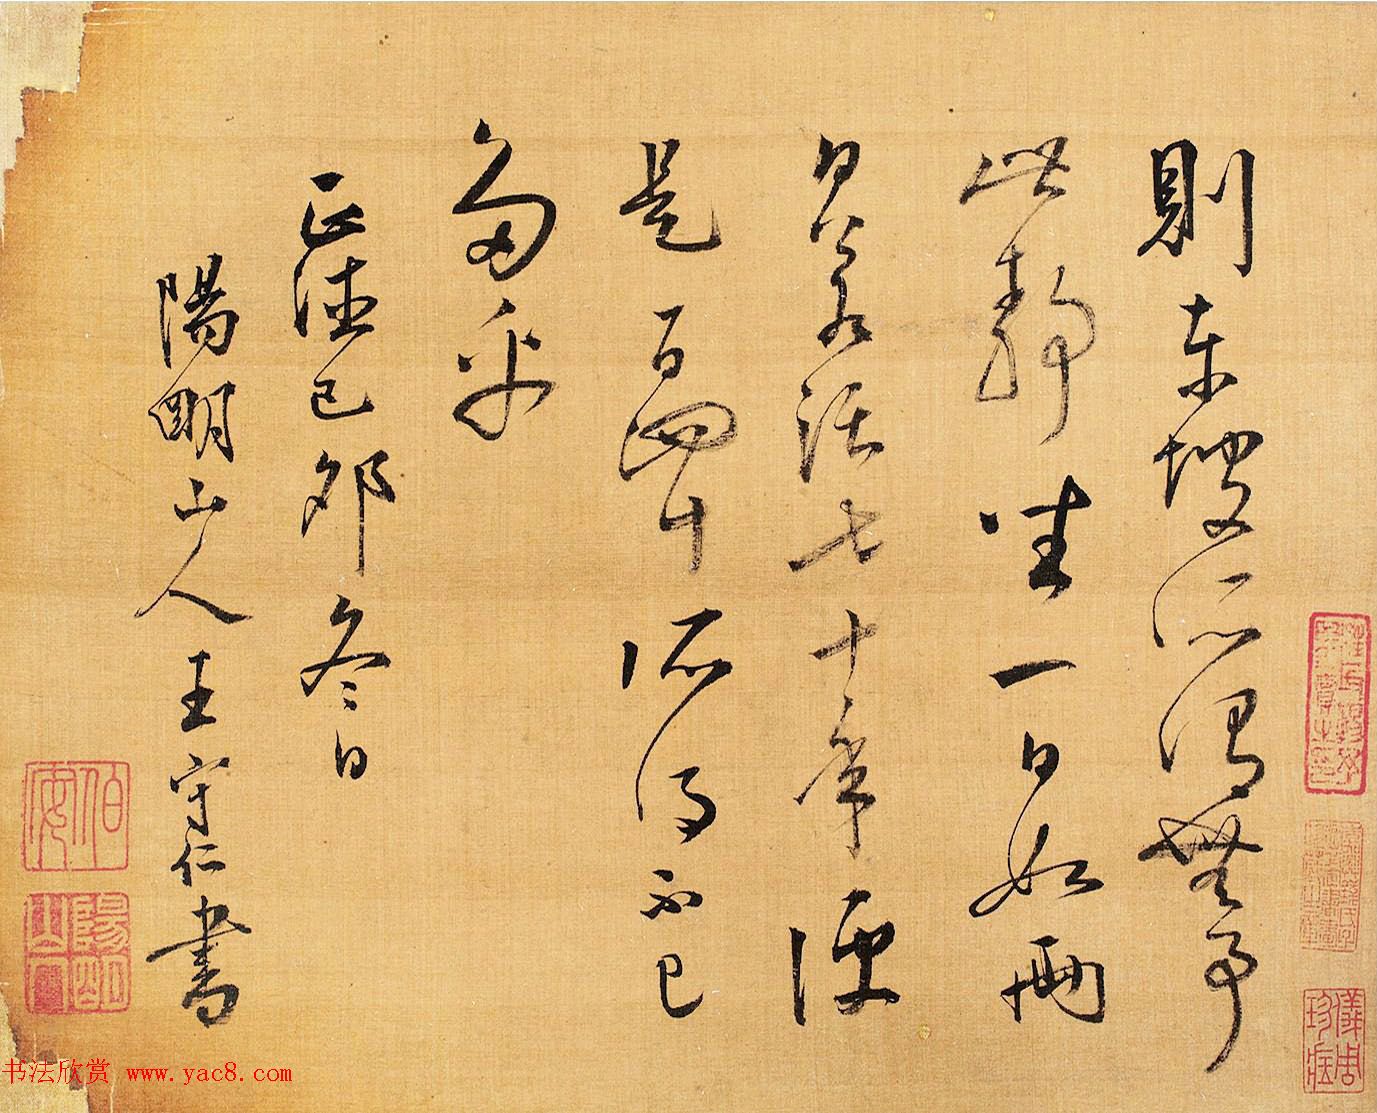 則東坡所謂無事
此靜坐一日如兩
日若活七十年便
是百四十所得不已
多乎
正德己卯冬日
陽明山人王守仁書
伯安
陽明山人
儀周珍藏
书法欣赏 www.yac8.com